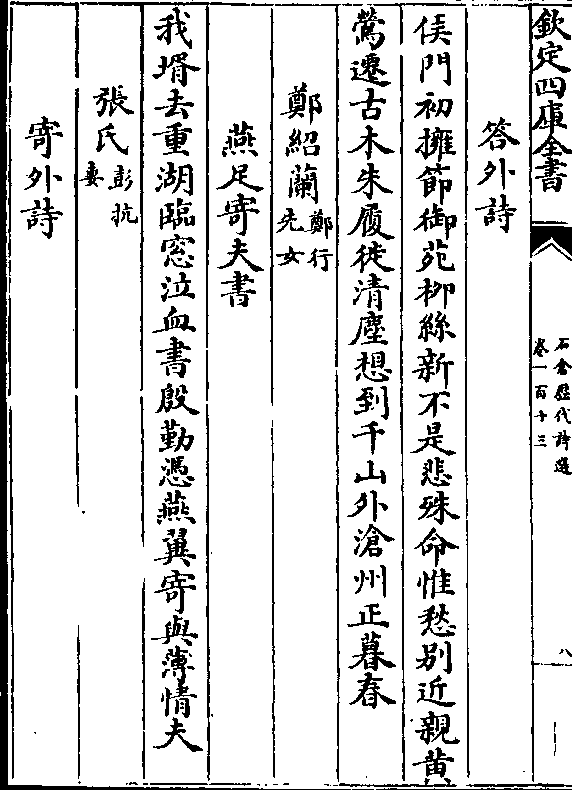 欽定四庫全書
石倉歷代詩選
卷一百十三
八
答外詩
侯門初擁節御苑柳絲新不是悲殊命惟愁別近親黄
鶯遷古木朱履徙清塵想到千山外滄州正暮春
鄭紹蘭鄭行
先女
燕足寄夫書
我壻去重湖臨窓泣血書殷勤憑燕翼寄與薄情夫
張氏彭抗
妻
寄外詩